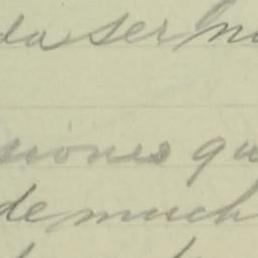 da ser m
siones qu
de much